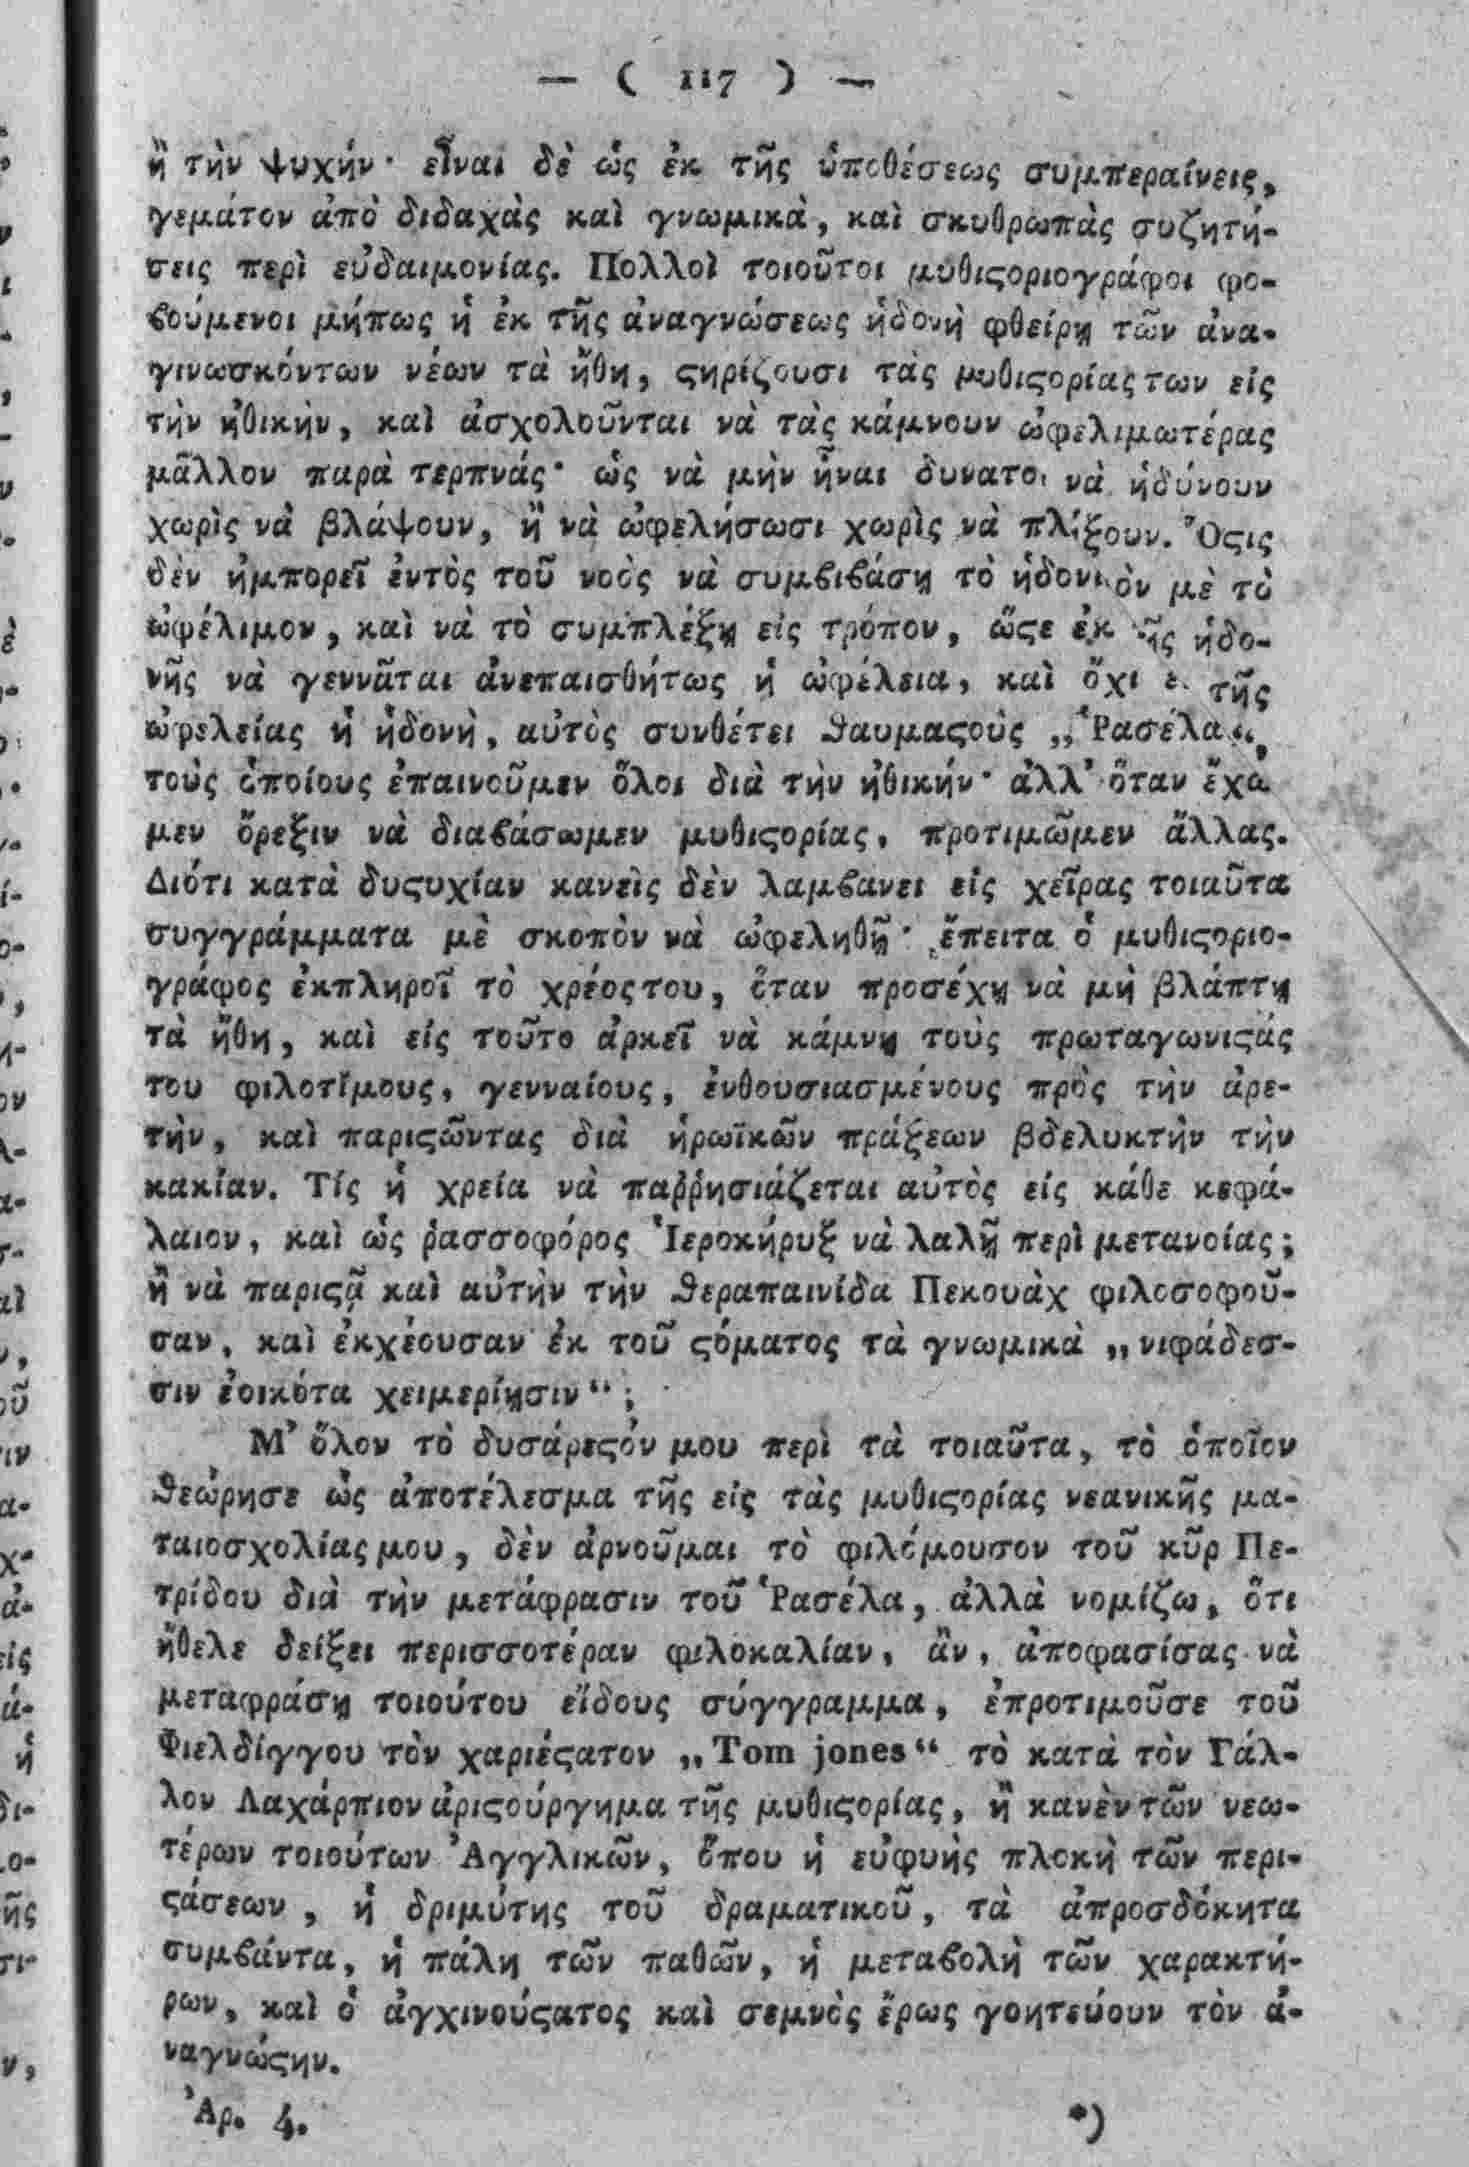 — ( 117 ) —
ἢ τὴν ψυχήν· εἶναι δὲ ὡς ἐκ τῆς ὑποθέσεως συμπεραίνεις,
γεμάτον ἀπὸ διδαχὰς καὶ γνωμικὰ, καὶ σκυθρωπὰς συζητή-
σεις περὶ εὐδαιμονίας. Πολλοὶ τοιοῦτοι μυθιϛοριογράφοι φο-
βούμενοι μήπως ἡ ἐκ τῆς ἀναγνώσεως ἡδονὴ φθείρῃ τῶν ἀνα-
γινωσκόντων νέων τὰ ἤθη, ϛηρίζουσι τὰς μυθιϛορίας των εἰς
τὴν ἠθικὴν, καὶ ἀσχολοῦνται νὰ τὰς κάμνουν ὠφελιμωτέρας
μᾶλλον παρὰ τερπνάς· ὡς νὰ μὴν ἦναι δυνατο νὰ ἡδύνουν
χωρὶς νὰ βλάψουν, ἢ νὰ ὠφελήσωσι χωρὶς νὰ πλήξουν. Ὅϛις
δὲν ἠμπορεῖ ἐντὸς τοῦ νοὸς νὰ συμβιβάσῃ τὸ ἡδονικὸν μὲ τὸ
ὠφέλιμον, καὶ νὰ τὸ συμπλέξῃ εἰς τρόπον, ὥϛε ἐκ τῆς ἡδο-
νῆς νὰ γεννᾶται ἀνεπαισθήτως ἡ ὠφέλεια, καὶ ὄχι ἐ. τῆς
ὠφελείας ἡ ἡδονὴ, αὐτὸς συνθέτει θαυμαϛοὺς „Ῥασέλα“,
τοὺς ὁποίους ἐπαινοῦμεν ὅλοι διὰ τὴν ἠθικήν· ἀλλ' ὅταν ἔχω
μεν ὄρεξιν νὰ διαβάσωμεν μυθιϛορίας, προτιμῶμεν ἄλλας.
Διότι κατὰ δυϛυχίαν κανεὶς δὲν λαμβανει εἰς χεῖρας τοιαῦτα
συγγράμματα μὲ σκοπὸν νὰ ὠφεληθῇ· ἔπειτα ὁ μυθιϛοριο-
γράφος ἐκπληροῖ τὸ χρέος του, ὅταν προσέχῃ νὰ μὴ βλάπτῃ
τὰ ἤθη, καὶ εἰς τοῦτο ἀρκεῖ νὰ κάμνῃ τοὺς πρωταγωνιϛάς
του φιλοτίμους, γενναίους, ἐνθουσιασμένους πρὸς τὴν ἀρε-
τὴν, καὶ παριϛῶντας διὰ ἡρωϊκῶν πράξεων βδελυκτὴν τὴν
κακίαν. Τίς ἡ χρεία νὰ παῤῥησιάζεται αὐτὸς εἰς κάθε κεφά-
λαιον, καὶ ὡς ῥασσοφόρος Ἱεροκήρυξ νὰ λαλῇ περὶ μετανοίας;
ἢ νὰ παριϛᾷ καὶ αὐτὴν τὴν θεραπαινίδα Πεκουὰχ φιλοσοφοῦ-
σαν, καὶ ἐκχέουσαν ἐκ τοῦ ϛόματος τὰ γνωμικὰ „νιφάδεσ-
σιν ἐοικότα χειμερίῃσιν“;
Μ' ὅλον τὸ δυσάρεϛόν μου περὶ τὰ τοιαῦτα, τὸ ὁποῖον
θεώρησε ὡς ἀποτέλεσμα τῆς εἰς τὰς μυθιϛορίας νεανικῆς μα-
ταιοσχολίας μου, δὲν ἀρνοῦμαι τὸ φιλόμουσον τοῦ κῦρ Πε-
τρίδου διὰ τὴν μετάφρασιν τοῦ Ῥασέλα, ἀλλὰ νομίζω, ὅτι
ἤθελε δείξει περισσοτέραν φιλοκαλίαν, ἂν, ἀποφασίσας νὰ
μεταφράσῃ τοιούτου εἴδους σύγγραμμα, ἐπροτιμοῦσε τοῦ
Φιελδίγγου τὸν χαριέϛατον „Tom jones“ τὸ κατὰ τὸν Γάλ-
λον Λαχάρπιον ἀριϛούργημα τῆς μυθιϛορίας, ἢ κανὲν τῶν νεω-
τέρων τοιούτων Ἀγγλικῶν, ὅπου ἡ εὐφυὴς πλοκὴ τῶν περι-
ϛάσεων, ἡ δριμύτης τοῦ δραματικοῦ, τὰ ἀπροσδόκητα
συμβάντα, ἡ πάλη τῶν παθῶν, ἡ μεταβολὴ τῶν χαρακτή-
ρων, καὶ ὁ ἀγχινούϛατος καὶ σεμνὸς ἔρως γοητεύουν τὸν ἀ-
ναγνώϛην.
Ἀρ. 4. *)